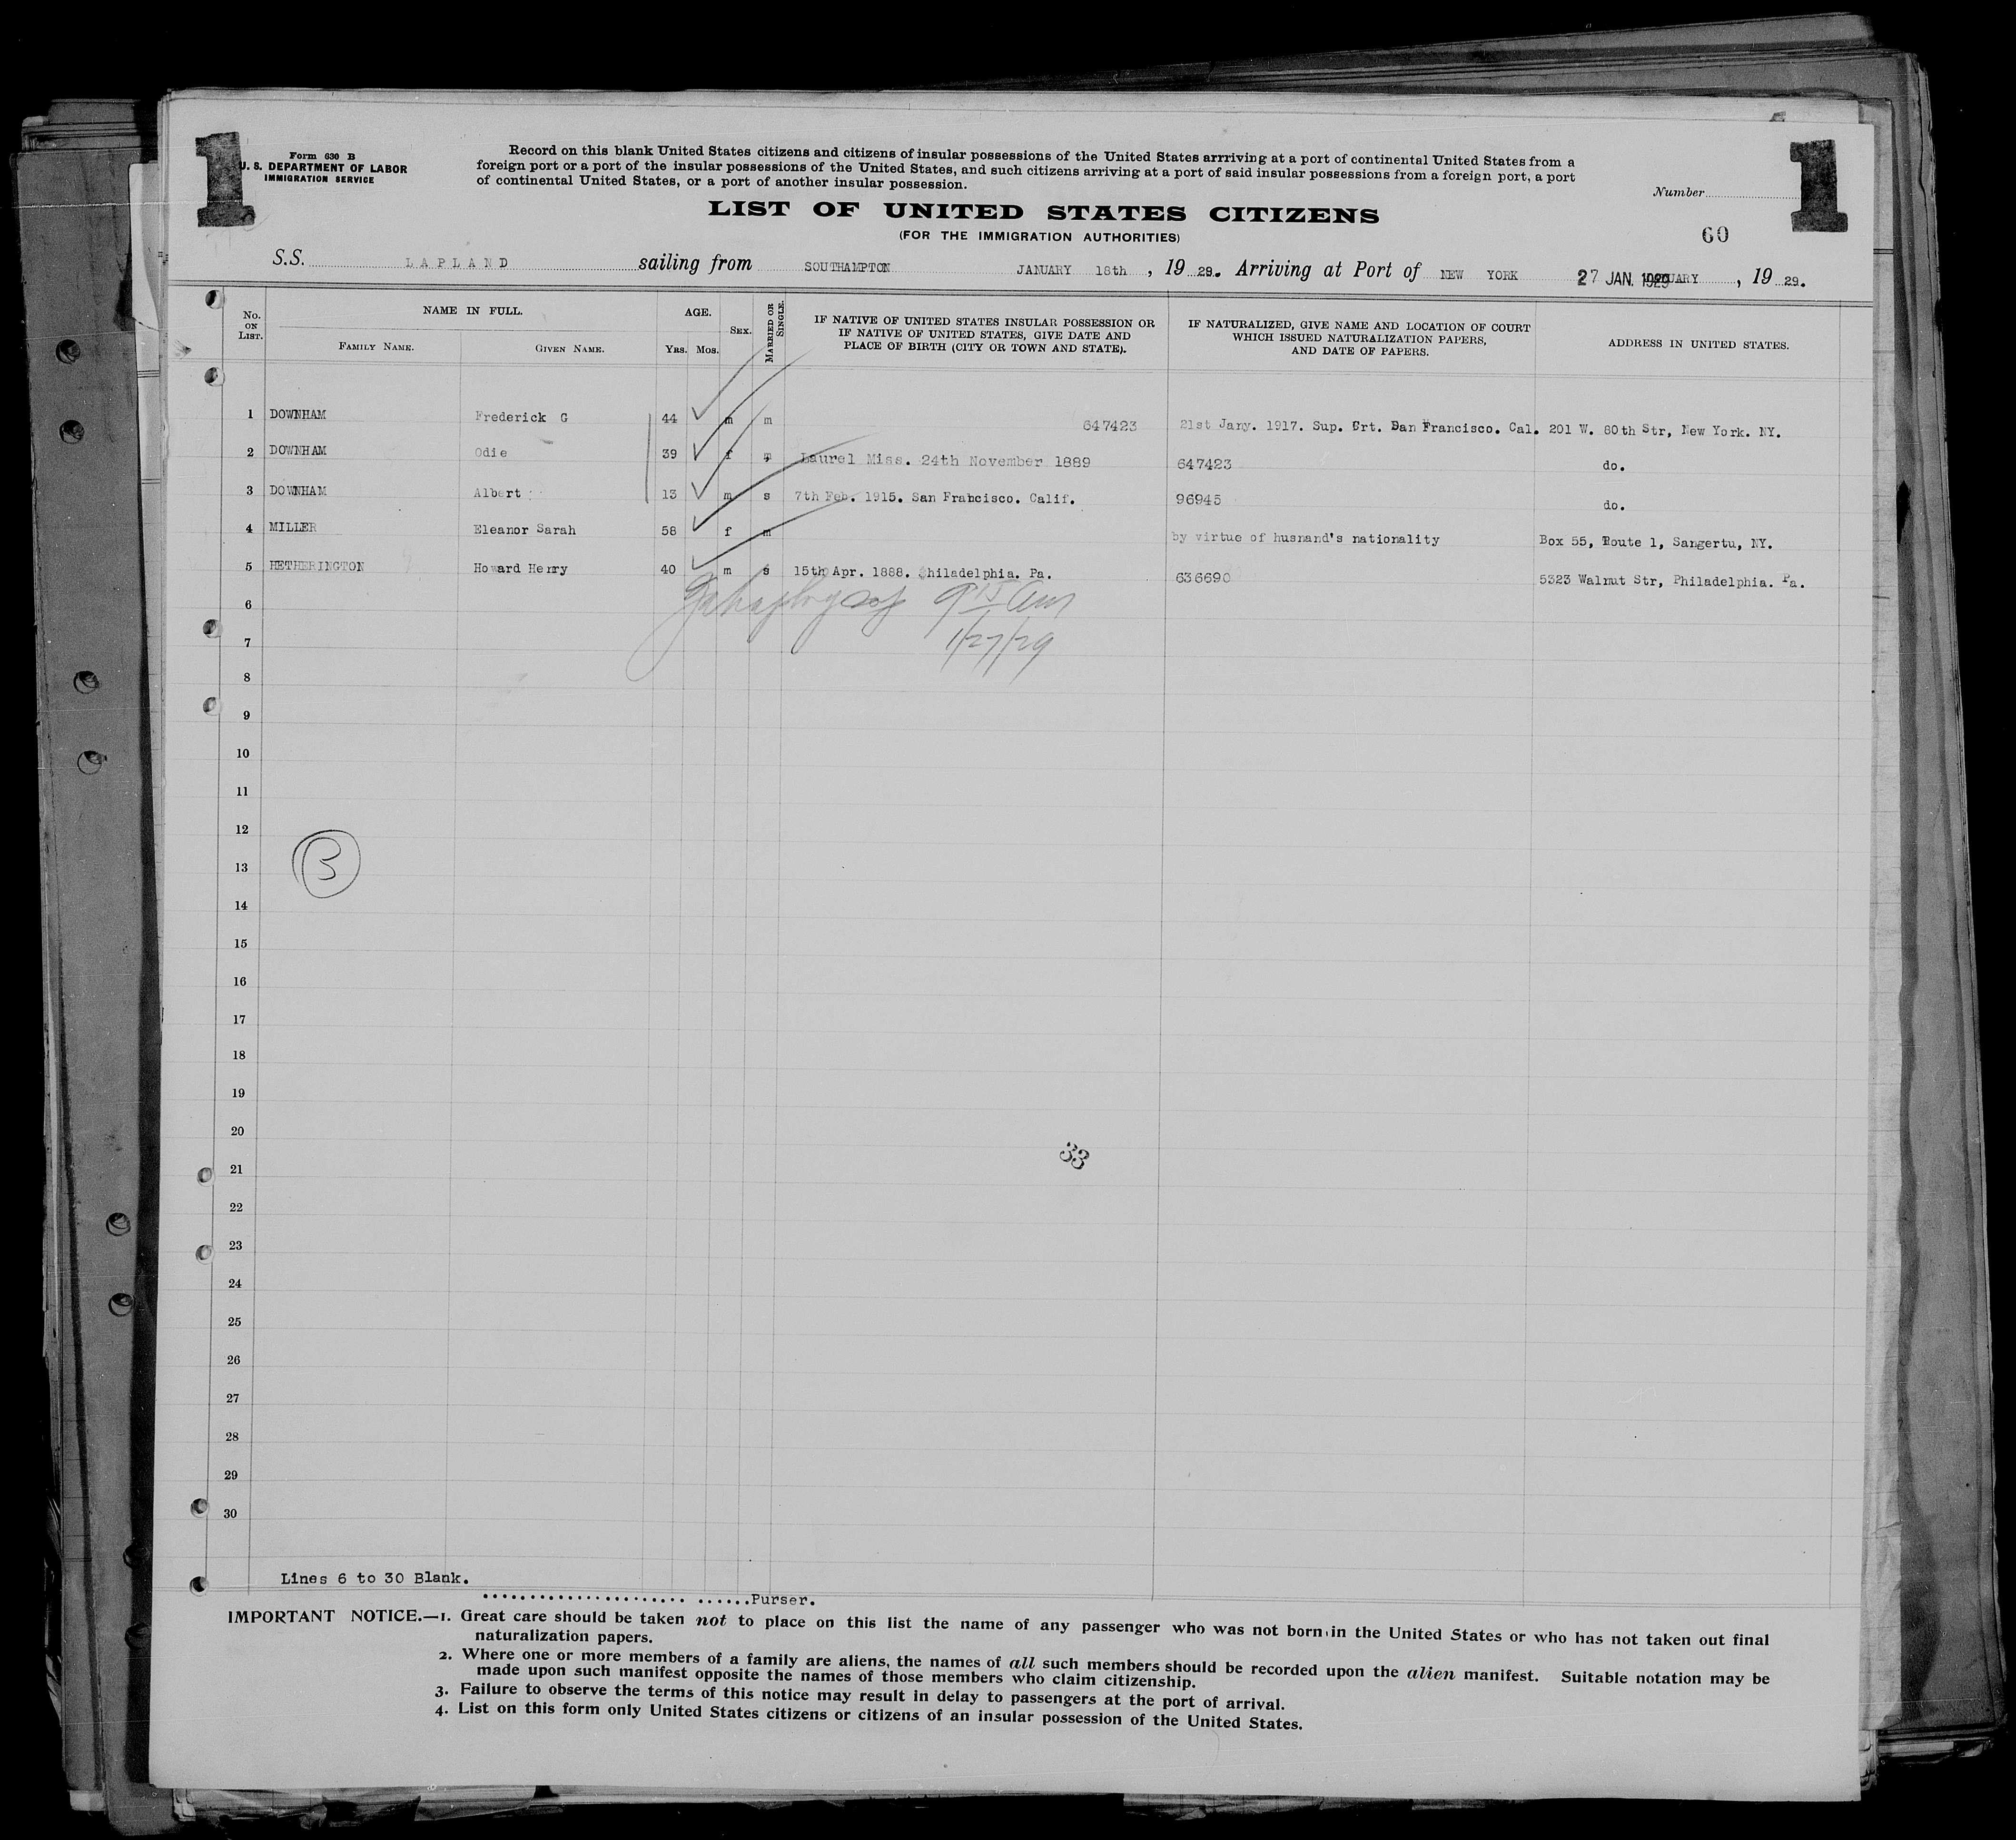 1
1
Form 630 B
U. S. DEPARTMENT OF LABOR
IMMIGRATION SERVICE
Record on this blank United States citizens and citizens of insular possessions of the United States arrriving at a port of continental United States from a
foreign port or a port of the insular possessions of the United States, and such citizens arriving at a port of said insular possessions from a foreign port, a port
of continental United States, or a port of another insular possession.
Number
LIST OF UNITED STATES CITIZENS
(FOR THE IMMIGRATION AUTHORITIES)
60
S.S. LAPLAND sailing from SOUTHAMPTON JANUARY 18th, 19 29. Arriving at Port of NEW YORK 27 JAN. 1929 , 19 29.
No. ON LIST. NAME IN FULL. AGE. SEX. MARRIED OR SINGLE. IF NATIVE OF UNITED STATES INSULAR POSSESSION OR IF NATIVE OF UNITED STATES, GIVE DATE AND PLACE OF BIRTH (CITY OR TOWN AND STATE). IF NATURALIZED, GIVE NAME AND LOCATION OF COURT WHICH ISSUED NATURALIZATION PAPERS, AND DATE OF PAPERS. ADDRESS IN UNITED STATES.
FAMILY NAME. GIVEN NAME. YRS. MOS.
1 DOWNHAM Frederick G 44 m m 647423 21st Jany. 1917. Sup. Crt. San Francisco. Cal. 201 W. 80th Str, New York. NY.
2 DOWNHAM Odie 39 f m Laurel Miss. 24th November 1889 647423 do.
3 DOWNHAM Albert 13 m s 7th Feb. 1915. San Francisco. Calif. 96945 do.
4 MILLER Eleanor Sarah 58 f m by virtue of husnand's nationality Box 55, Route 1, Sangertu, NY.
5 HETHERINGTON Howard Henry 40 m s 15th Apr. 1888. Philadelphia. Pa. 636690 5323 Walnut Str, Philadelphia. Pa.
6 9 15 am
7 1/27/29
8
9
10
11
12
13 3
14
15
16
17
18
19
20
33
21
22
23
24
25
26
27
28
29
30
Lines 6 to 30 Blank.
Purser.
IMPORTANT NOTICE.—1. Great care should be taken not to place on this list the name of any passenger who was not born in the United States or who has not taken out final
naturalization papers.
2. Where one or more members of a family are aliens, the names of all such members should be recorded upon the alien manifest. Suitable notation may be
made upon such manifest opposite the names of those members who claim citizenship.
3. Failure to observe the terms of this notice may result in delay to passengers at the port of arrival.
4. List on this form only United States citizens or citizens of an insular possession of the United States.